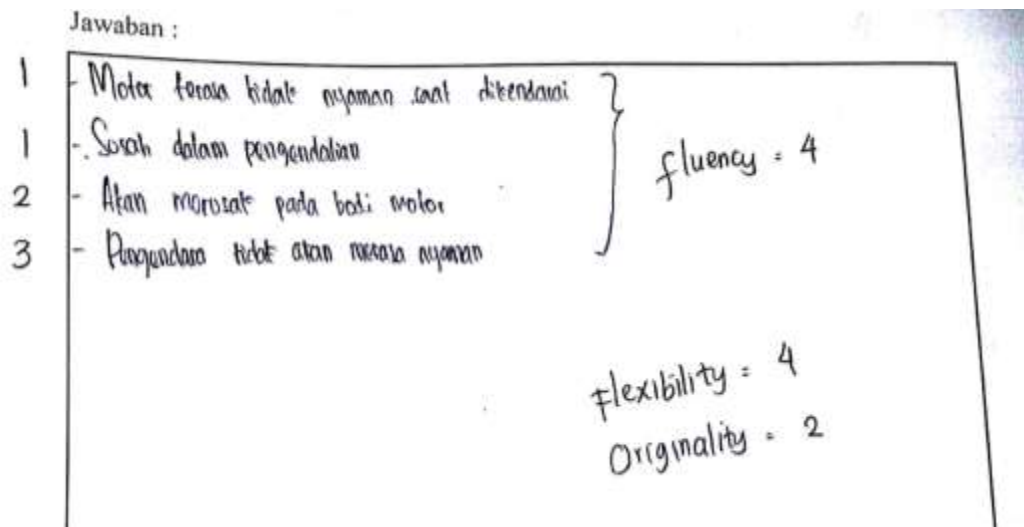 Jawaban :
1 - Motor terasa tidak nyaman saat dikendarai
1 - Susah dalam pengendalian
2 - Akan merusak pada bodi motor
3 - Pengendara tidak akan merasa nyaman
fluency = 4
flexibility = 4
Originality = 2